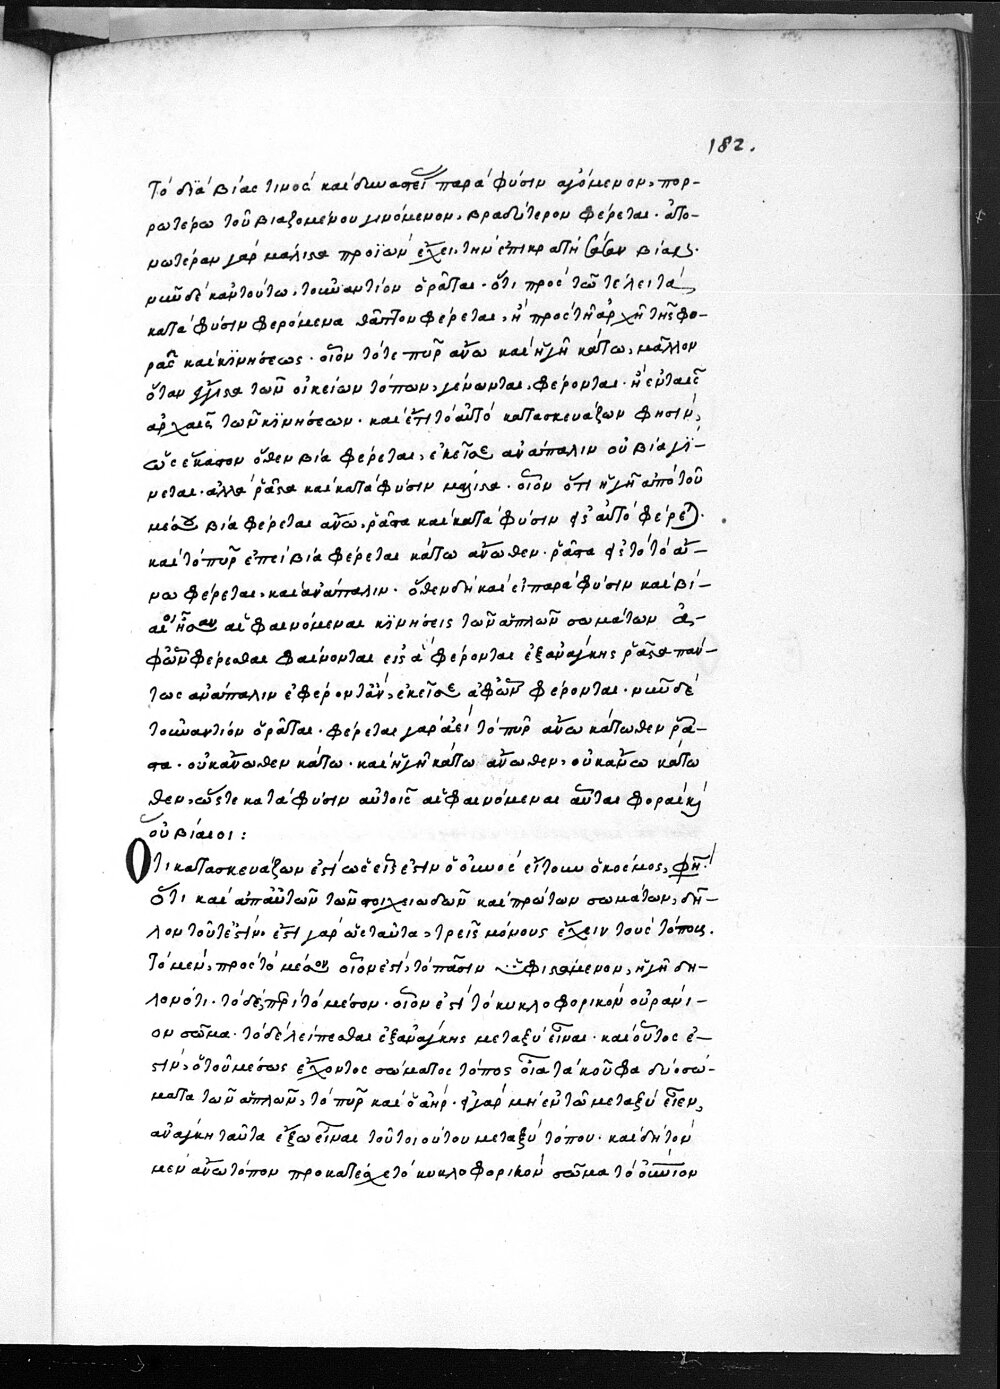 182.
Τὸ διὰ βίας τινὸς καὶ δυναστεί παρὰ φύσιν ἀγόμενον, πορ-
ρωτέρω τοῦ βιαζομένου γινόμενον, βραδύτερον φέρεται. ἀτο-
νωτέραν γὰρ μάλιστα προϊὼν ἔχει τὴν ἐπικρατήσασαν βίαν.
νῦν δὲ κἀν τούτω, τοὐναντίον ὁρᾶται. ὅτι πρὸς τῶ τέλει τὰ
κατὰ φύσιν φερόμενα θᾶττον φέρεται, ἢ πρὸς τῆ ἀρχῆ τῆς φο-
ρᾶς καὶ κινήσεως. οἷον τό τε πῦρ ἄνω καὶ ἡ γῆ κάτω, μᾶλλον
ὅταν ἔγγιστα τῶν οἰκείων τόπων γένωνται, φέρονται. ἢ ἐν ταῖς
ἀρχαῖς τῶν κινήσεων. καὶ ἔτι τὸ αὐτὸ κατασκευάζων φησὶν,
ὡς ἕκαστον ὅθεν βία φέρεται, ἐκεῖσε ἀνάπαλιν οὐ βία γί-
νεται. ἀλλὰ ῥᾶστα καὶ κατὰ φύσιν μάλιστα. οἷον ὅτι ἡ γῆ ἀπὸ τοῦ
μέσου βία φέρεται ἄνω, ῥᾶστα καὶ κατὰ φύσιν ἐς αὐτὸ φέρεται.
καὶ τὸ πῦρ ἐπεὶ βία φέρεται κάτω ἄνωθεν. ῥᾶστα ἐς τὸ τὸ ἄ-
νω φέρεται, καὶ ἀνάπαλιν. ὅθεν δὴ καὶ εἰ παρὰ φύσιν καὶ βί-
αι ἦσαν αἱ φαινόμεναι κινήσεις τῶν ἁπλῶν σωμάτων ἀ-
φῶν φέρεσθαι φαίνονται εἰς ἃ φέρονται ἐξανάγκης ῥᾶστα πάν-
τως ἀνάπαλιν ἐφέροντ' ἂν, ἐκεῖσε ἀφῶν φέρονται. νῦν δὲ
τοὐναντίον ὁρᾶται. φέρεται γὰρ ἀεὶ τὸ πῦρ ἄνω κάτωθεν ῥᾶ-
στα. οὐκ ἄνωθεν κάτω. καὶ ἡ γῆ κάτω ἄνωθεν, οὐκ ἄνω κάτω
θεν, ὥστε κατὰ φύσιν αὐτοῖς αἱ φαινόμεναι αὗται φοραὶ κὶ
οὐ βίαιοι:
Ὅτι κατασκευάζων ἔτι ὡς εἷς ἐστιν ὁ οὐνὸς εἴτουν ὁ κόσμος, φησὶ.
Ὅτι καὶ ἀπ' αὐτῶν τῶν στοιχειωδῶν καὶ πρώτων σωμάτων, δῆ-
λον τοῦτ' ἔστιν. ἔστι γὰρ ὡς ταῦτα, τρεῖς μόνους ἔχειν τοὺς τόπους.
Τὸ μὲν, πρὸς τὸ μέσον οἷον ἐστὶ, τὸ πᾶσιν ὑφιστάμενον, ἡ γῆ δη-
λονότι. τὸ δὲ, περὶ τὸ μέσον. οἷον ἐστὶ τὸ κυκλοφορικὸν οὐράνι-
ον σῶμα. τὸ δὲ λείπεσθαι ἐξανάγκης μεταξὺ εἶναι. καὶ οὗτος ἐ-
στὶν, ὁ τοῦ μέσως ἔχοντος σώματος τόπος οἷα τὰ κοῦφα δύο σώ-
ματα τῶν ἁπλῶν, τὸ πῦρ καὶ ὁ ἀὴρ. εἰ γὰρ μὴ ἐν τῶ μεταξὺ εἶεν,
ἀνάγκη ταῦτα ἔξω εἶναι τοῦ τοιούτου μεταξὺ τόπου. καὶ δὴ τὸν
μὲν ἄνω τόπον προκατέσχε τὸ κυκλοφορικὸν σῶμα τὸ οὐνιον